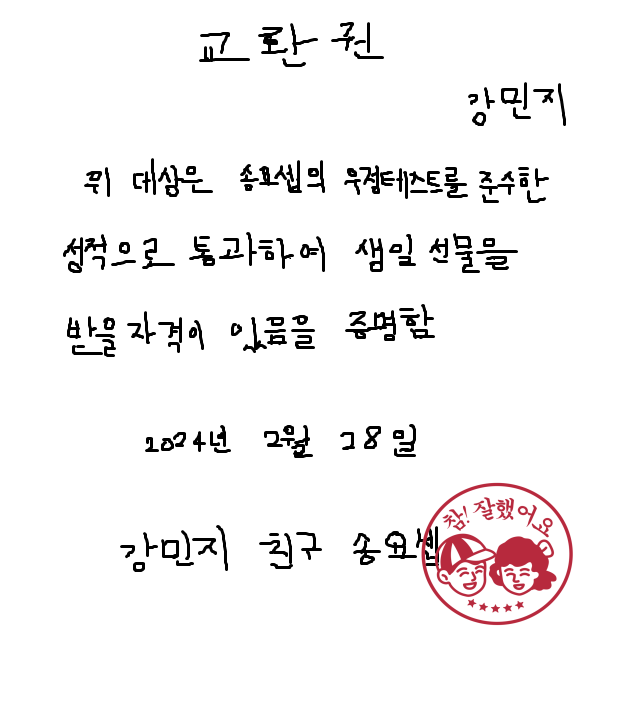 교환권
강민지
위 대상은 송요셉의 우정테스트를 준수한
성적으로 통과하여 생일 선물을
받을 자격이 있음을 증명함
2024년 2월 28일
강민지 친구 송요셉
참! 잘했어요